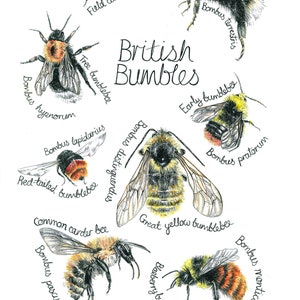 Field cu
Bombus terrestris
British
Bumbles
Tree bumblebee
Bombus hypnorum
Early bumblebee
Bombus pratorum
Bombus lapidarius
Red-tailed bumblebee
Bombus distinguendus
Great yellow bumblebee
Common carder bee
Bombus pascu
Bilberry b
Bombus montic